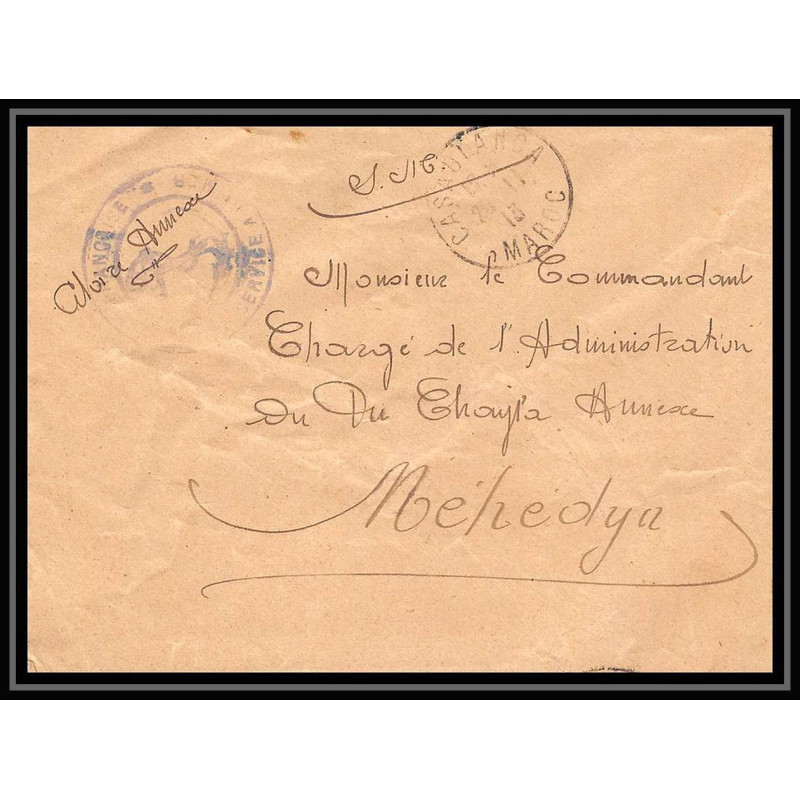 S. M.
CASABLANCA
11
13
MAROC
SERVICE
Annexe
Monsieur le Commandant
Chargé de l'Administration
du Du Chayla Annexe
Méhédya